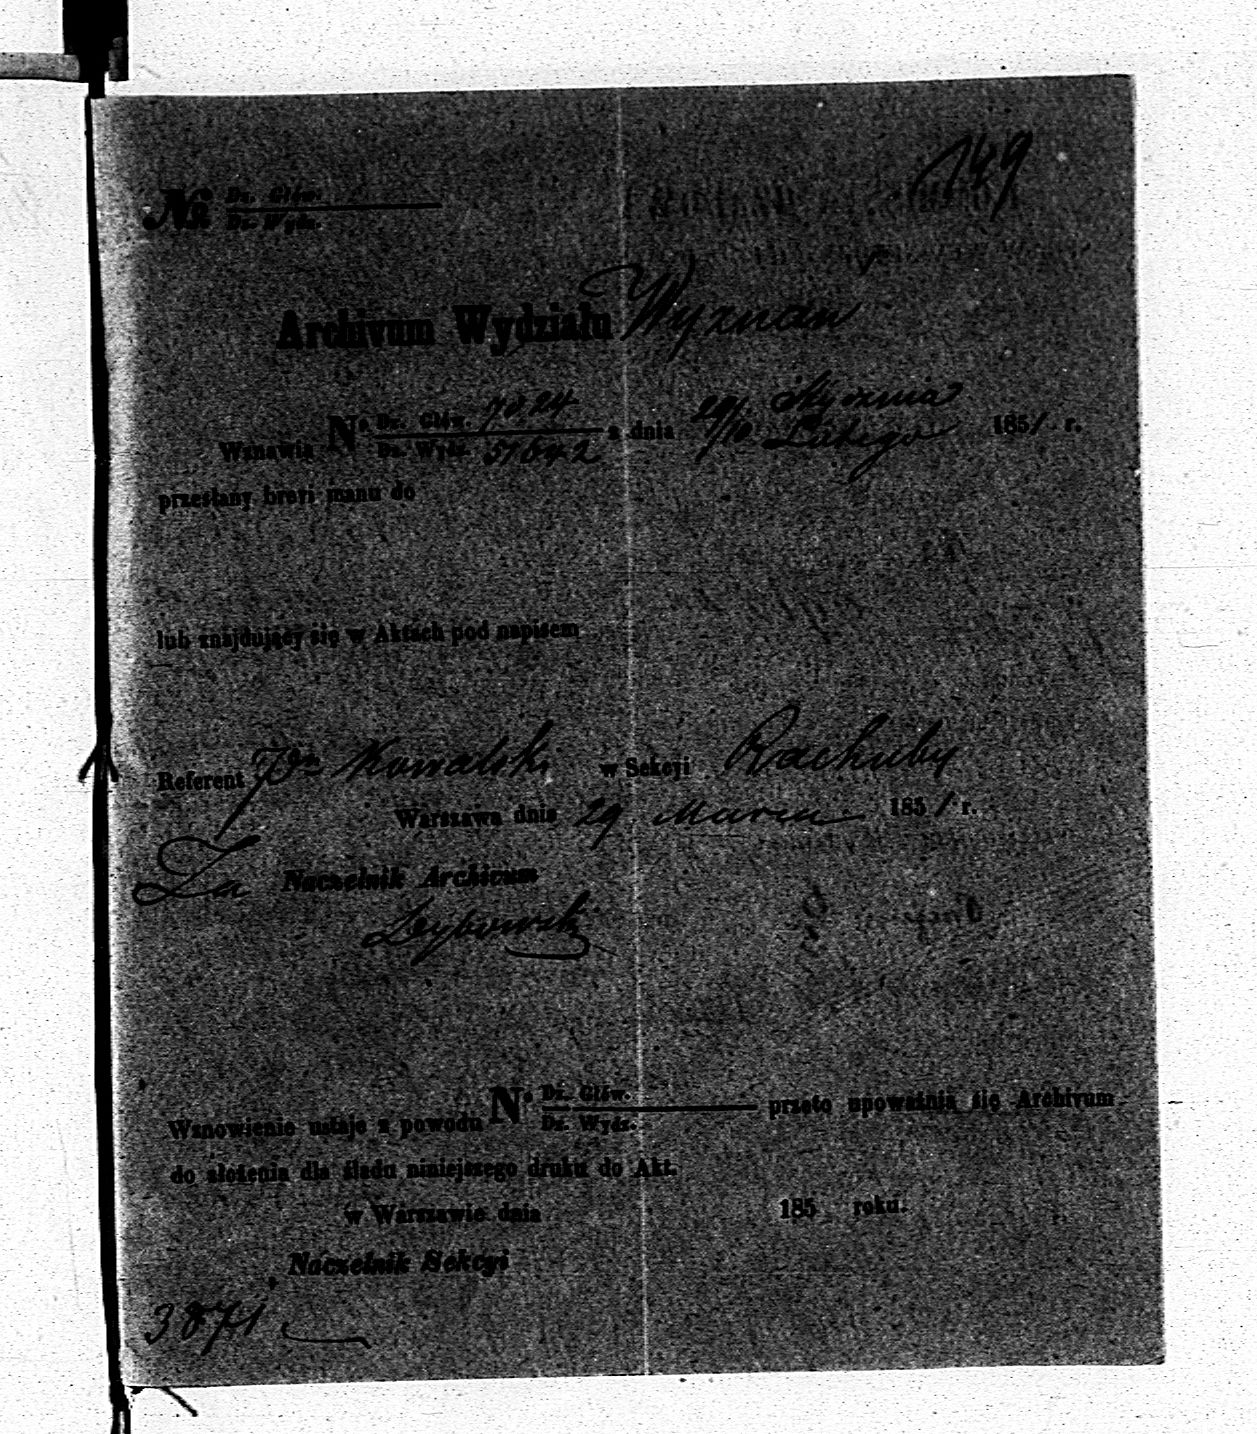 149
№ Dz. Głów.
Dz. Wydz.
Archivum Wydziału Wyznań
Wznawia N° Dz. Głów. 7824 z dnia 29/10 Stycznia Lutego 1851 r.
Dz. Wydz. 51642
przesłany brevi manu do
lub znajdujący się w Aktach pod napisem
Referent Pn Kowalski w Sekcyi Rachuby
Warszawa dnia 29 Marca 1851 r.
Za Naczelnik Archivum
Wznowienie ustaje z powodu N° Dz. Głów. przeto upoważnia się Archivum
Dz. Wydz.
do złożenia dla śladu niniejszego druku do Akt.
w Warszawie dnia 185 roku.
Naczelnik Sekcyi
3871